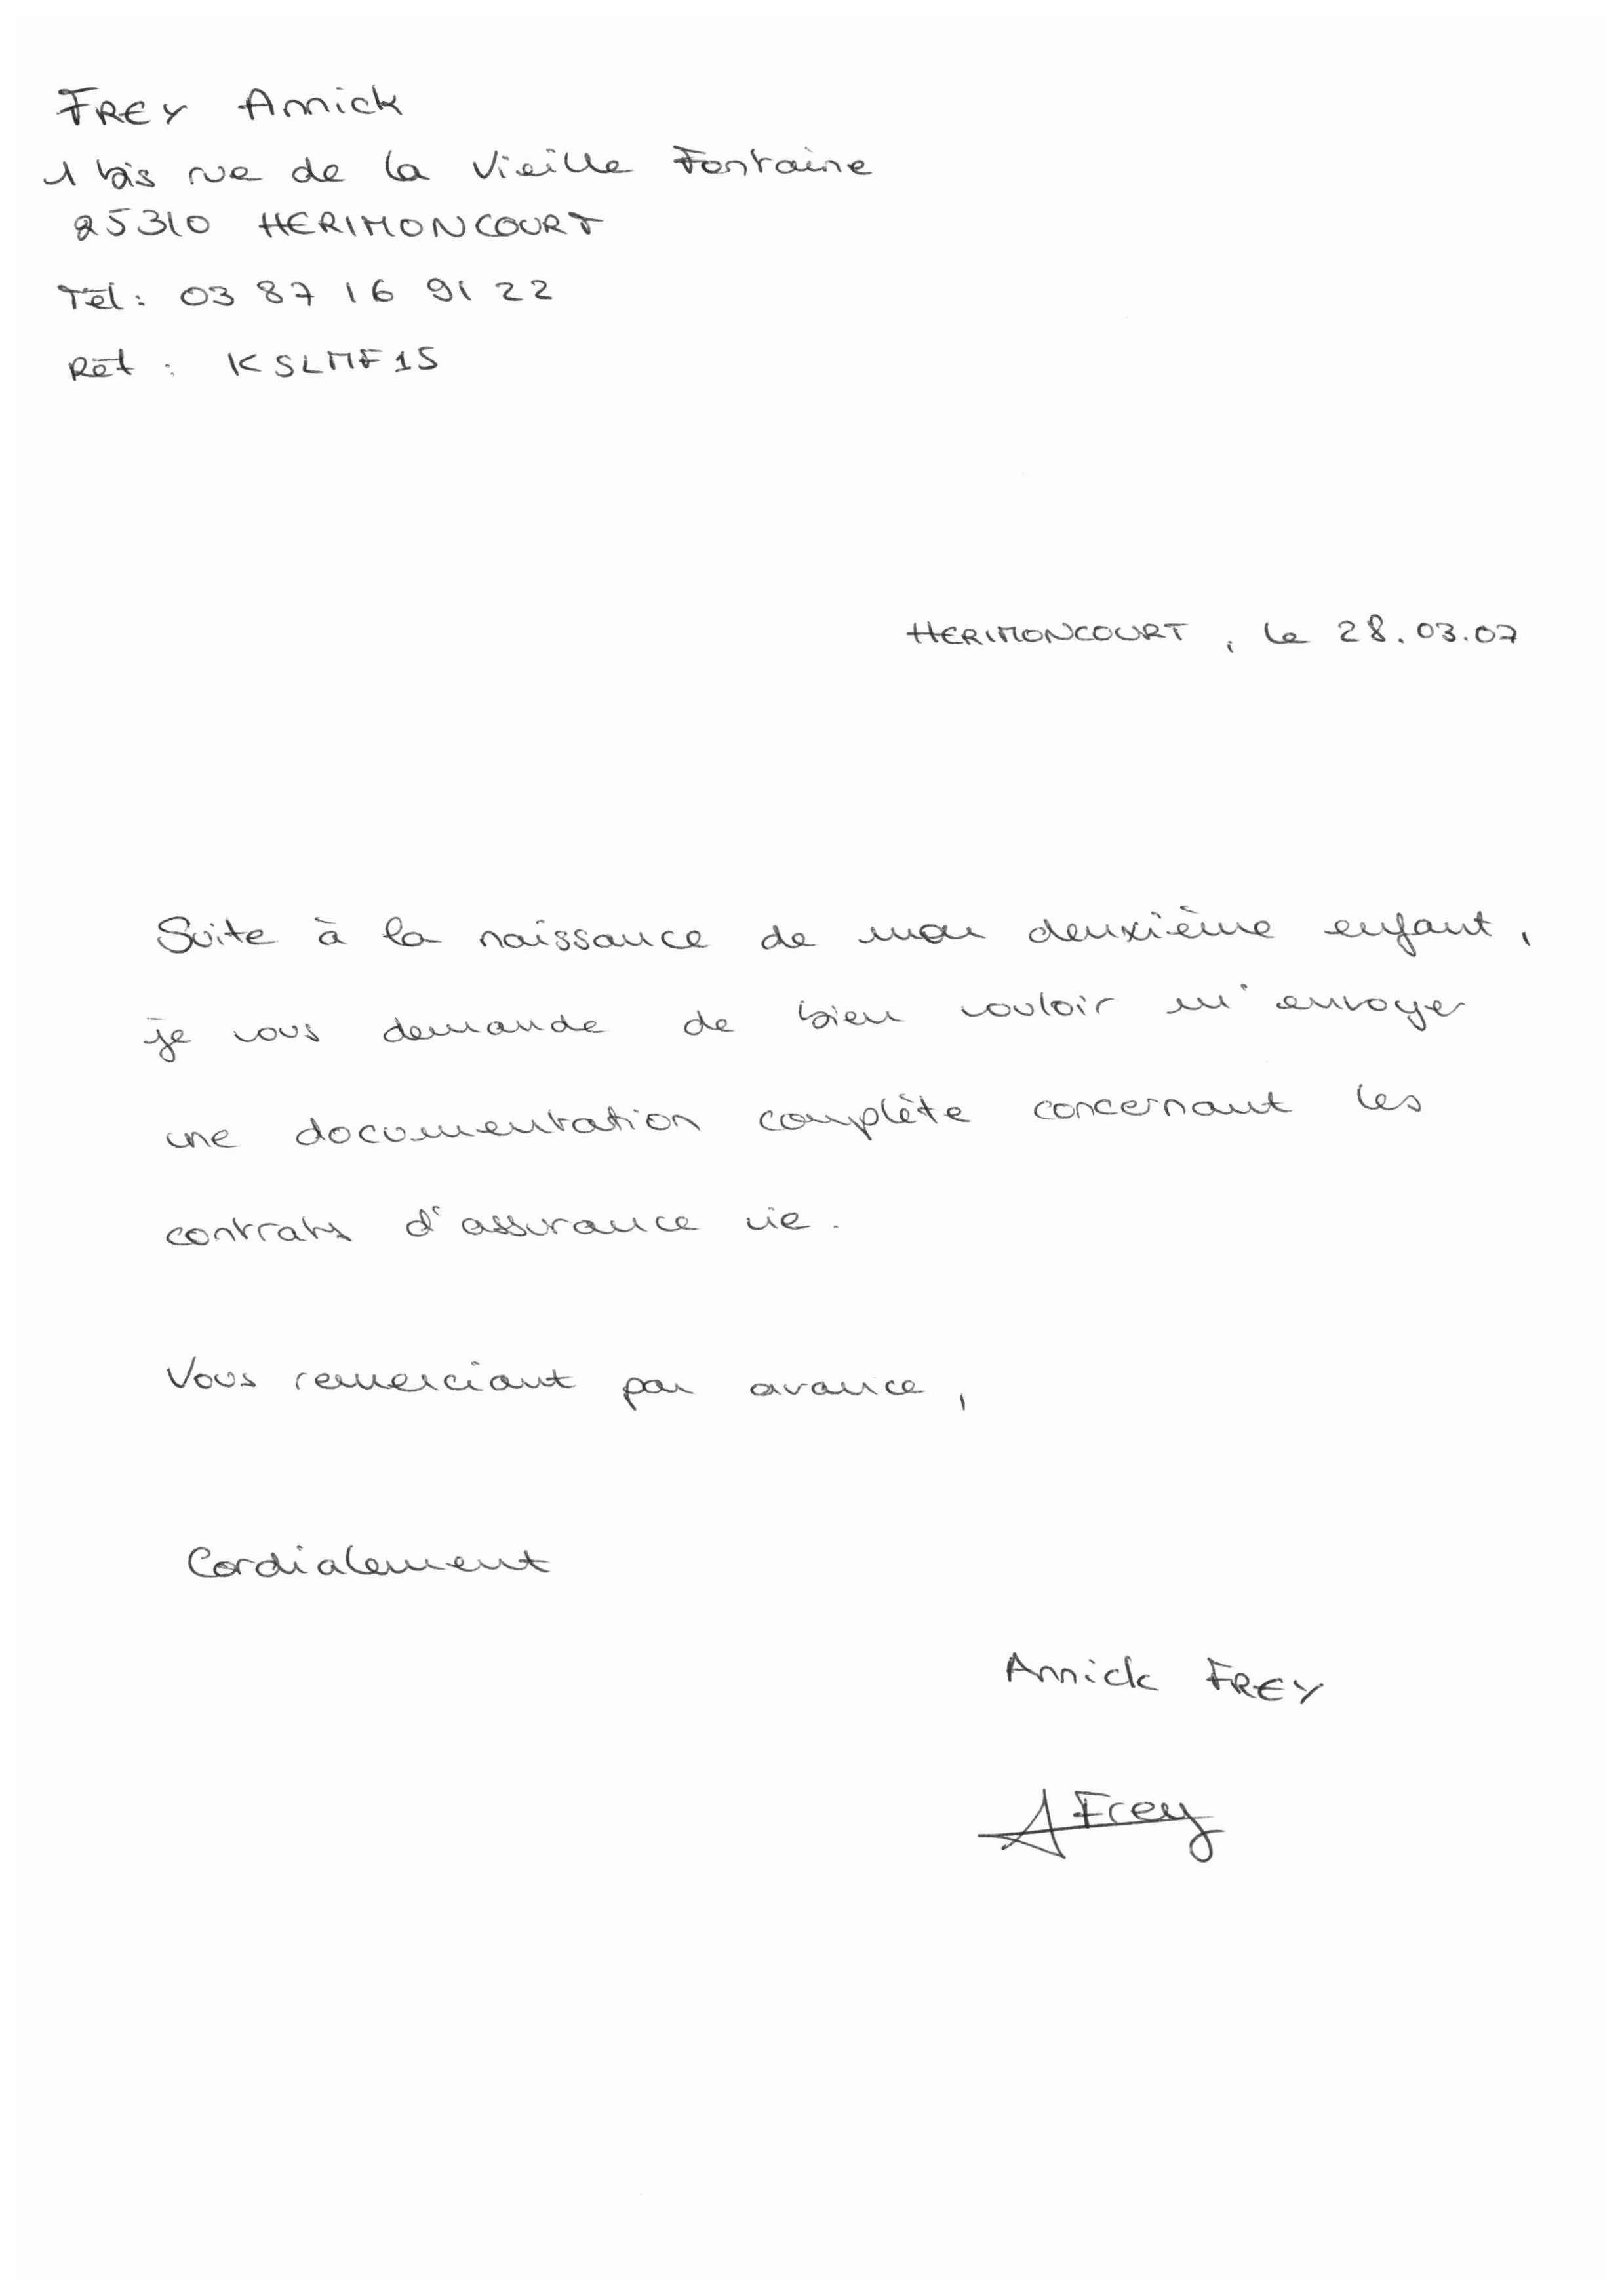 FREY Annick
1 bis rue de la Vieille Fontaine
25310 HERIMONCOURT
Tél : 03 87 16 91 22
Réf : KSLMF15
HERIMONCOURT, le 28.03.07
Suite à la naissance de mon deuxième enfant,
je vous demande de bien vouloir m'envoyer
une documentation complète concernant les
contrats d'assurance vie.
Vous remerciant par avance,
Cordialement
Annick FREY
A Frey